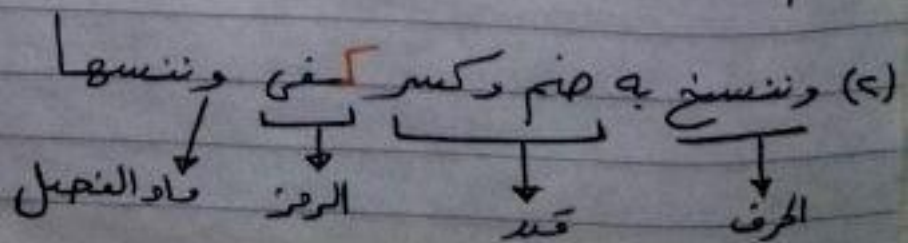 (٢) وننسخ به ضم وكسر كفى وننسها
الحرف قيد الرمز واو الفصل